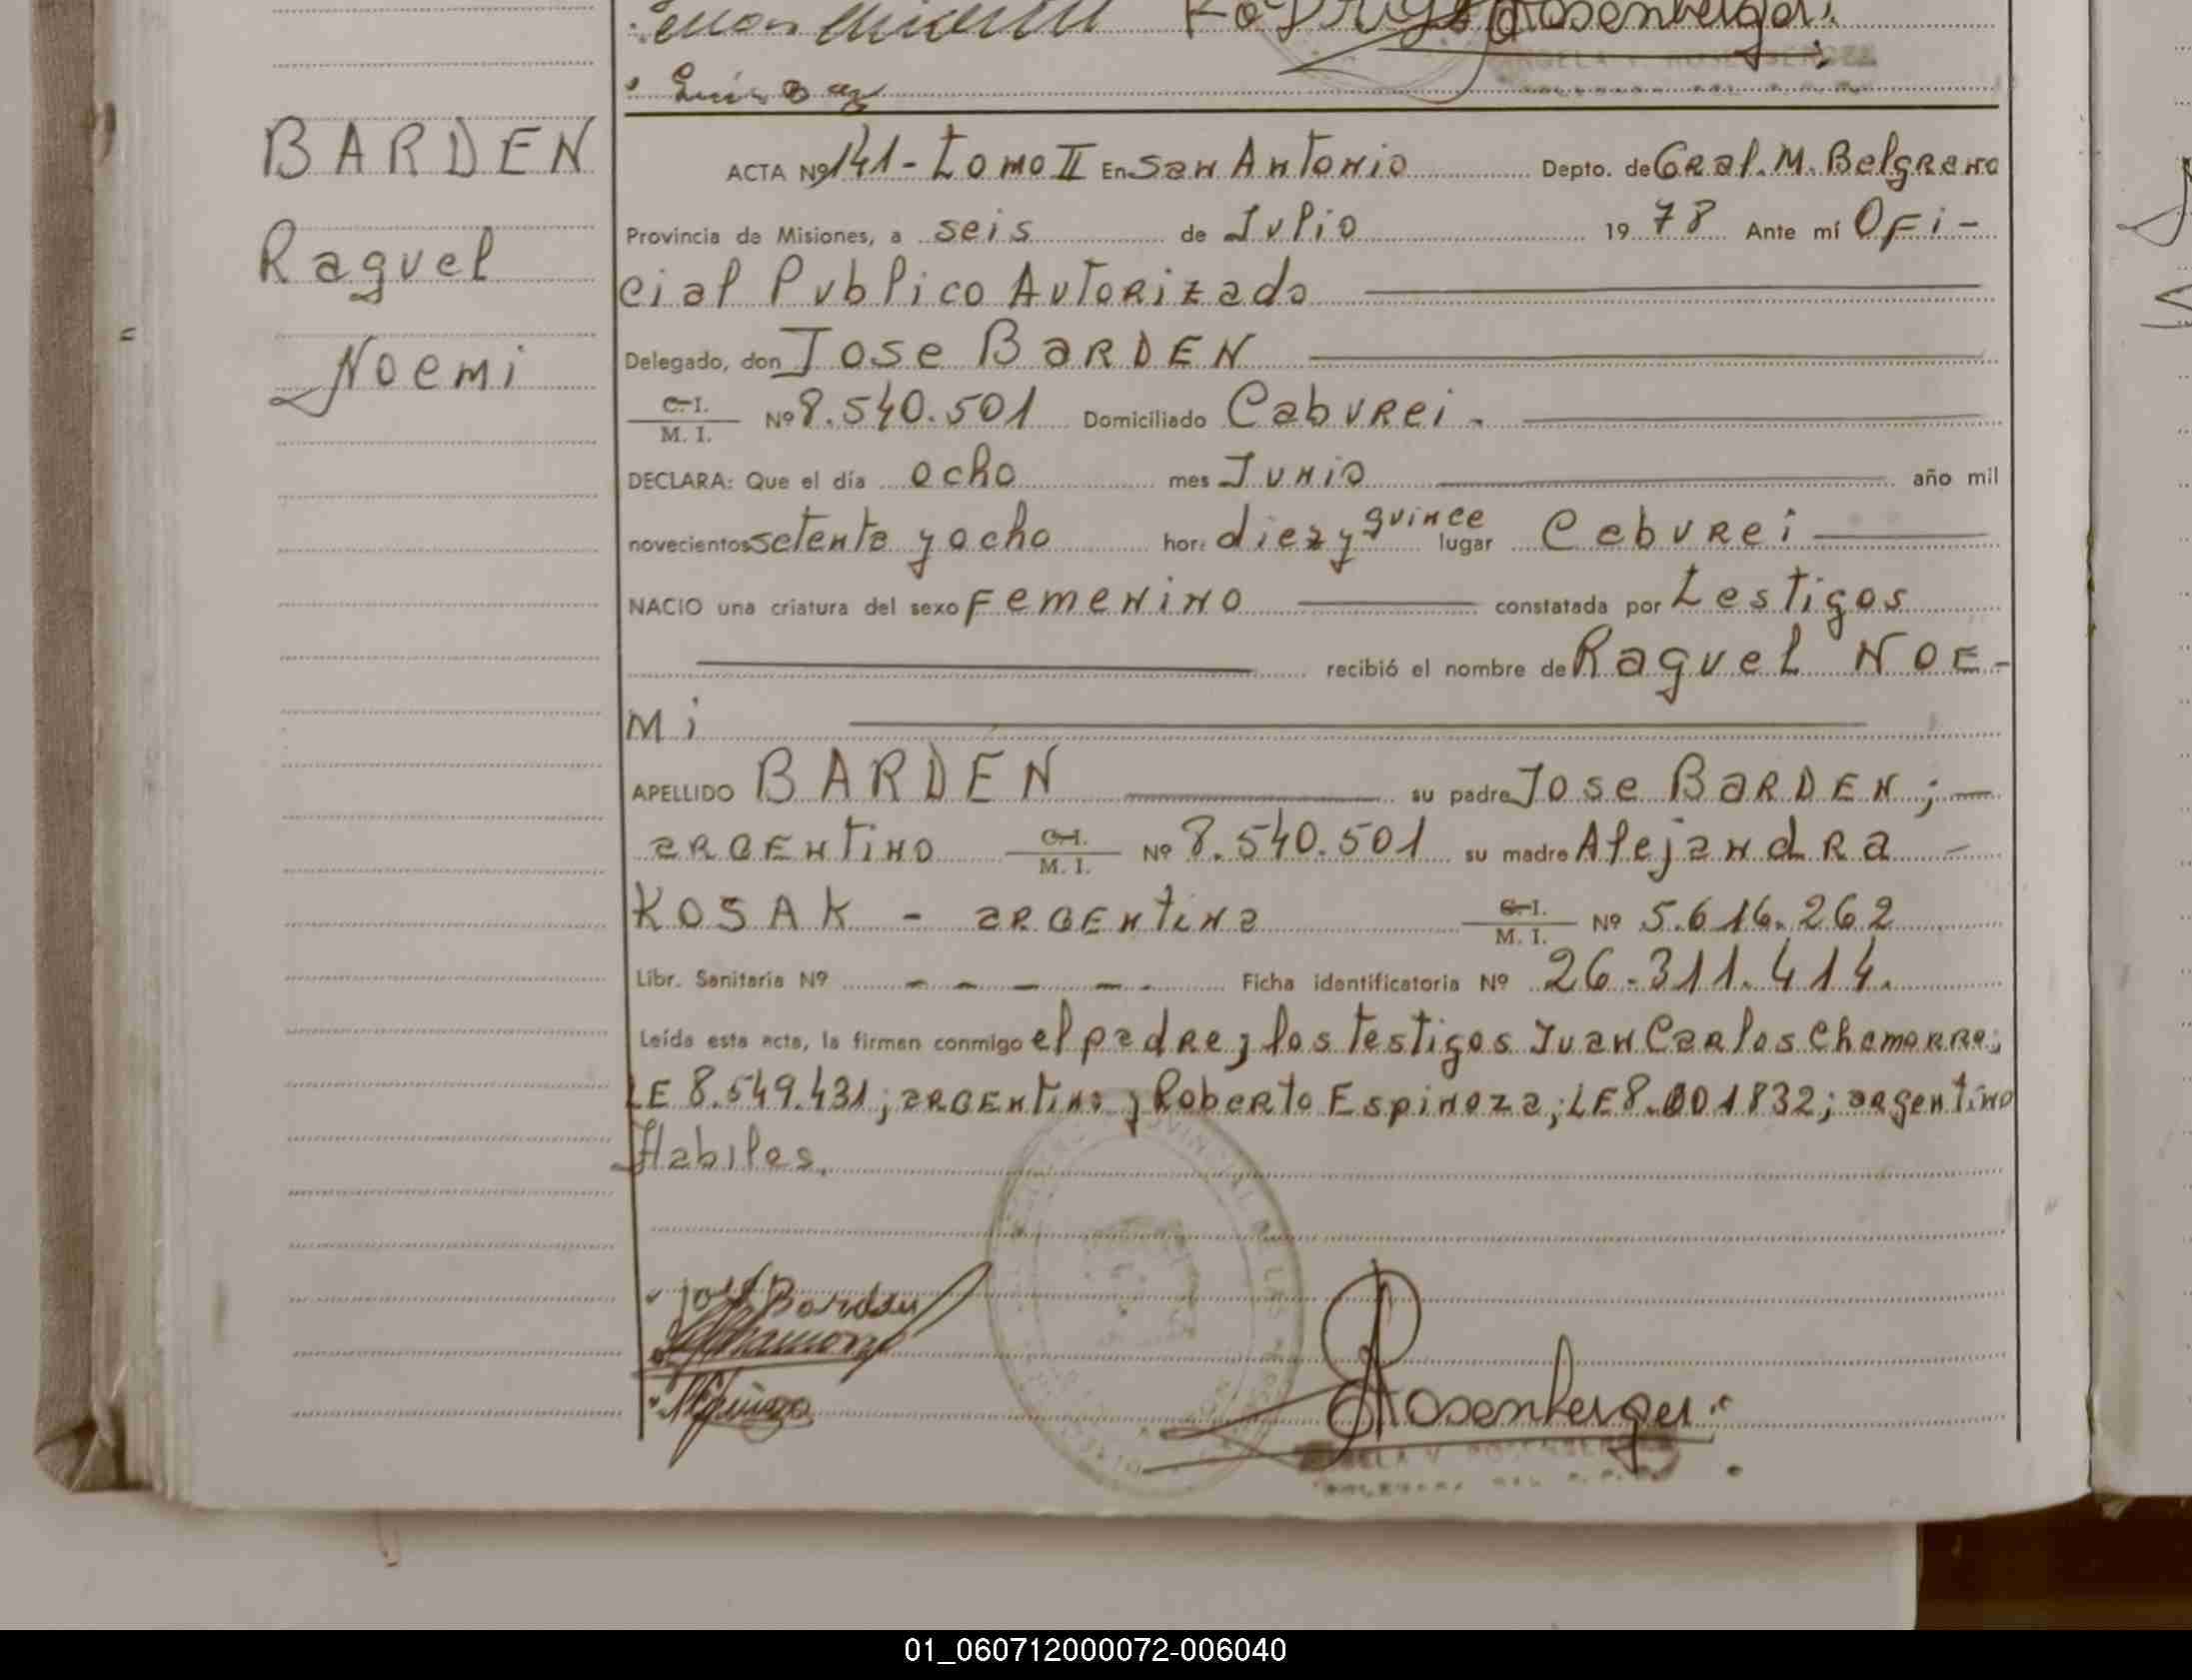 Rosenberger
Luis
BARDEN
Raquel
Noemi
ACTA Nº 141 - Tomo II En San Antonio Depto. de Gral. M. Belgrano
Provincia de Misiones, a seis de Julio 1978 Ante mí Ofi-
cial Publico Autorizado
Delegado, don Jose BARDEN
C.I.
M. I. Nº 8.540.501 Domiciliado Caburei -
DECLARA: Que el día ocho mes Junio año mil
novecientos setenta y ocho hora diez y quince lugar Caburei
NACIO una criatura del sexo Femenino constatada por testigos
recibió el nombre de Raquel NOE-
Mi
APELLIDO BARDEN su padre Jose BARDEN ; -
argentino C.I.
M. I. Nº 8.540.501 su madre Alejandra -
KOSAK - argentina C.I.
M. I. Nº 5.616.262
Libr. Sanitaria Nº - - - - - Ficha identificatoria Nº 26.311.414.
Leída esta acta, la firman conmigo el padre y los testigos Juan Carlos Chamorro;
LE 8.549.431; argentino y Roberto Espinoza; LE 8.001832; argentino
Habiles.
José Barden
Rosenberger
01_060712000072-006040